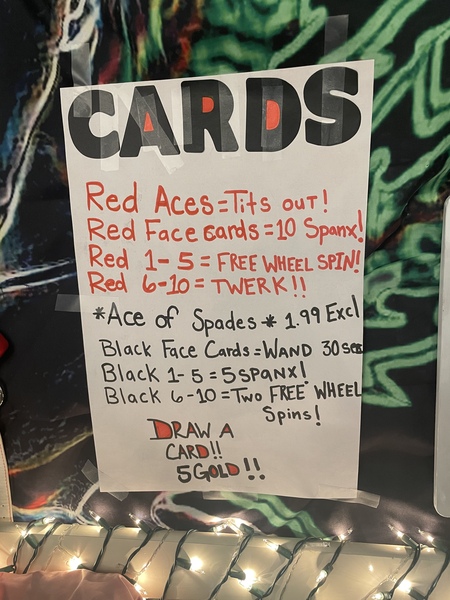 CARDS
Red Aces=Tits out!
Red Face cards=10 Spanx!
Red 1-5=FREE WHEEL SPIN!
Red 6-10=TWERK!!
*Ace of Spades* 1.99 Excl
Black Face Cards=WAND 30sec
Black 1-5=5 SPANX!
Black 6-10=Two FREE WHEEL
Spins!
DRAW A
CARD!!
5 GOLD!!